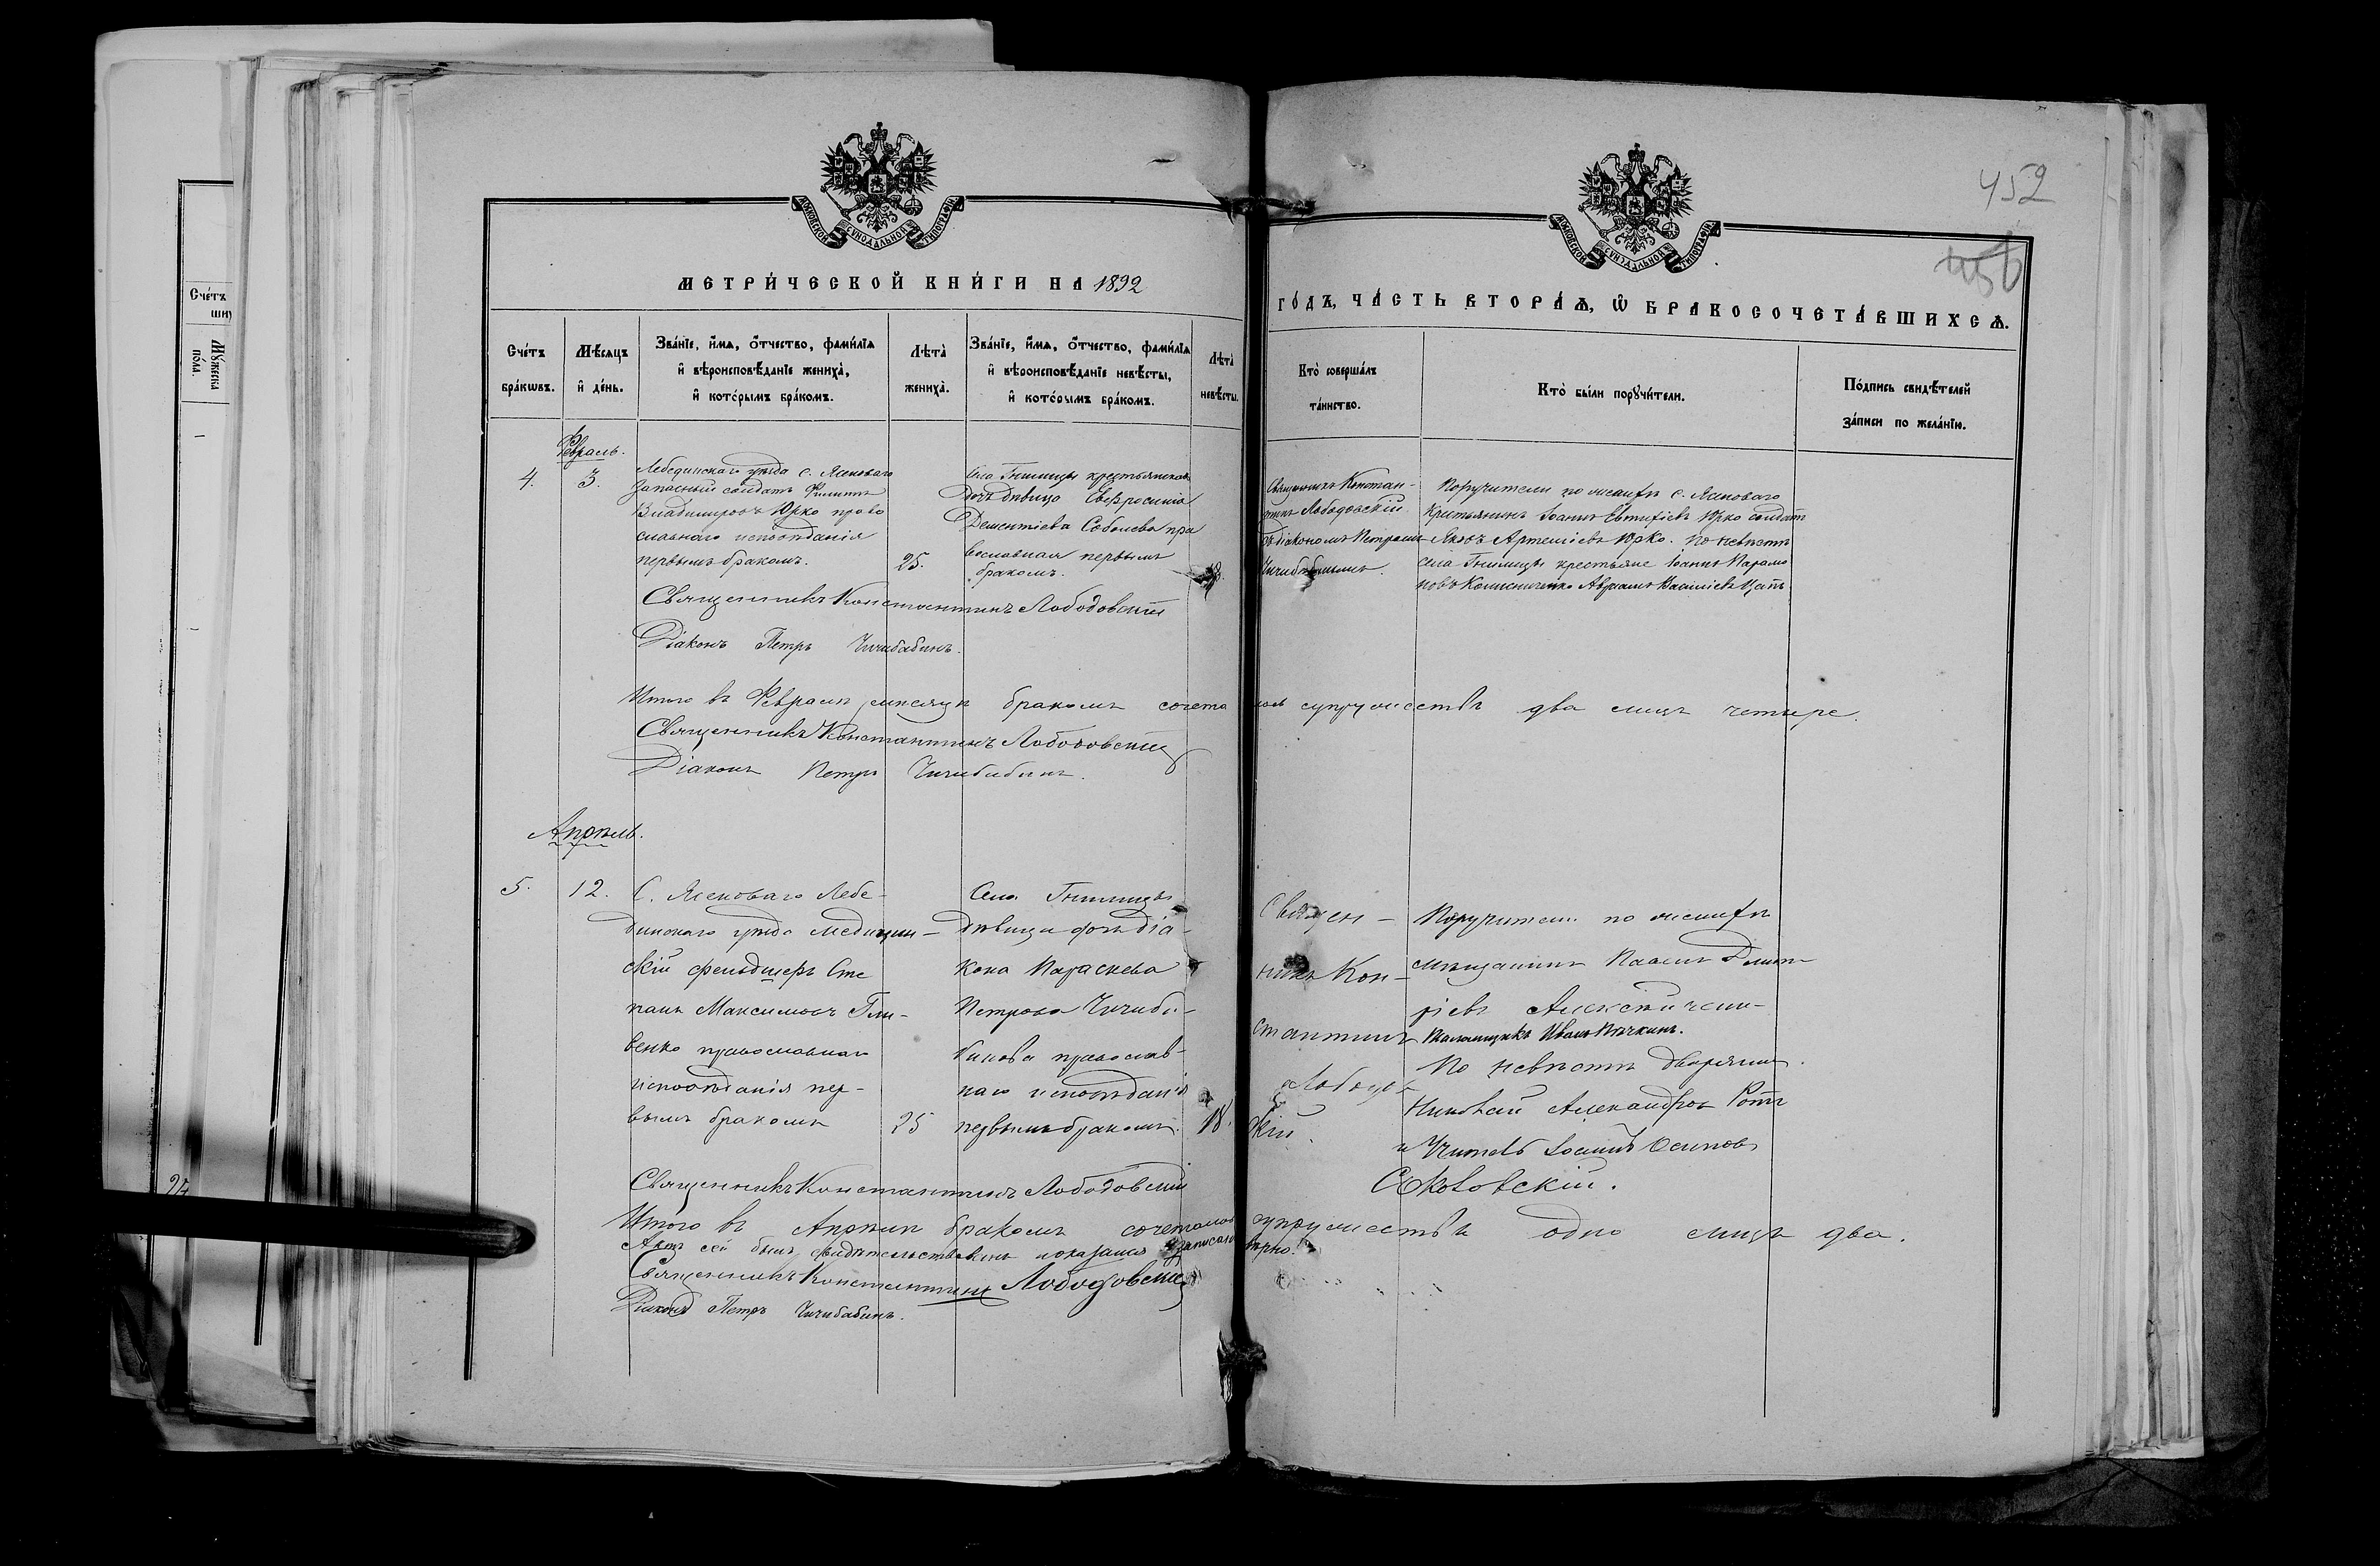 МОСКОВСКОЙ СУНОДАЛЬНОЙ ТИПОГРАФІИ
МОСКОВСКОЙ СУНОДАЛЬНОЙ ТИПОГРАФІИ
452
МЕТРИ́ЧЕСКОЙ КНИ́ГИ НА 1892
ГО́ДЪ, ЧА́СТЬ ВТОРА́Ѧ, Ѿ БРАКОСОЧЕТА́ВШИХСѦ.
Сче́тъ бра́кѡвъ.
Мѣ́сяцъ и де́нь.
Зва́нїе, и҆́мѧ, о҆́тчество, фами́лїѧ
и҆ вѣроисповѣ́данїе жениха̀,
и҆ кото́рымъ бра́комъ.
Лѣта̀ жениха̀.
Зва́нїе, и҆́мѧ, о҆́тчество, фами́лїѧ
и҆ вѣроисповѣ́данїе невѣ́сты,
и҆ кото́рымъ бра́комъ.
Лѣта̀ невѣ́сты.
Кто̀ соверша́лъ
та́инство.
Кто̀ бы́ли поручи́тели.
По́дпись свидѣ́телей
за́писи по жела́нїю.
Февраль.
4.
3.
Лебединскаго уѣзда с. Ясеноваго
запасный солдатъ Филиппъ
Владимировъ Юрко право
славнаго исповѣданія
первымъ бракомъ.
25.
Села Гнилицы крестьянская
дочь дѣвица Евфросинія
Дементіева Соболева пра
вославная первымъ
бракомъ.
Священникъ Констан-
тинъ Лободовскій
съ діакономъ Петромъ
Чичибабинымъ.
Поручители по женихѣ с. Ясеноваго
крестьянинъ Іоаннъ Евтихіевъ Юрко солдатъ
Яковъ Артеміевъ Юрко. По невѣстѣ
села Гнилицы крестьяне Іоаннъ Парамо
новъ Авраамъ Василіевъ
Священникъ Константинъ Лободовскій
Діаконъ Петръ Чичибабинъ.
Итого въ Февралѣ мѣсяцѣ бракомъ сочета лось супружествъ два лицъ четыре.
Священникъ Константинъ Лободовскій
Діаконъ Петръ Чичибабинъ.
Апрѣль.
5.
12.
С. Ясеноваго Лебе-
динскаго уѣзда медицин-
скій фельдшеръ Сте
панъ Максимовъ
венко православнаго
исповѣданія пер-
вымъ бракомъ
25
Села Гнилицы
дѣвица дочь діа-
кона Параскева
Петрова Чичиба-
бинова православ-
наго исповѣданія
первымъ бракомъ.
18.
Священ-
никъ Кон-
стантинъ
Лободов
скій.
Поручители по женихѣ
мѣщанинъ Павелъ Димит-
ріевъ
Иванъ
По невѣстѣ дворянин
Николай Александров
и Учитель Іоаннъ Осиповъ
Соколовскій.
Священникъ Константинъ Лободовскій
Итого въ Апрѣлѣ бракомъ сочеталось супружествъ одно лицъ два.
Актъ сей былъ свидѣтельствованъ показалось записано вѣрно.
Священникъ Константинъ Лободовскій
Діаконъ Петръ Чичибабинъ.